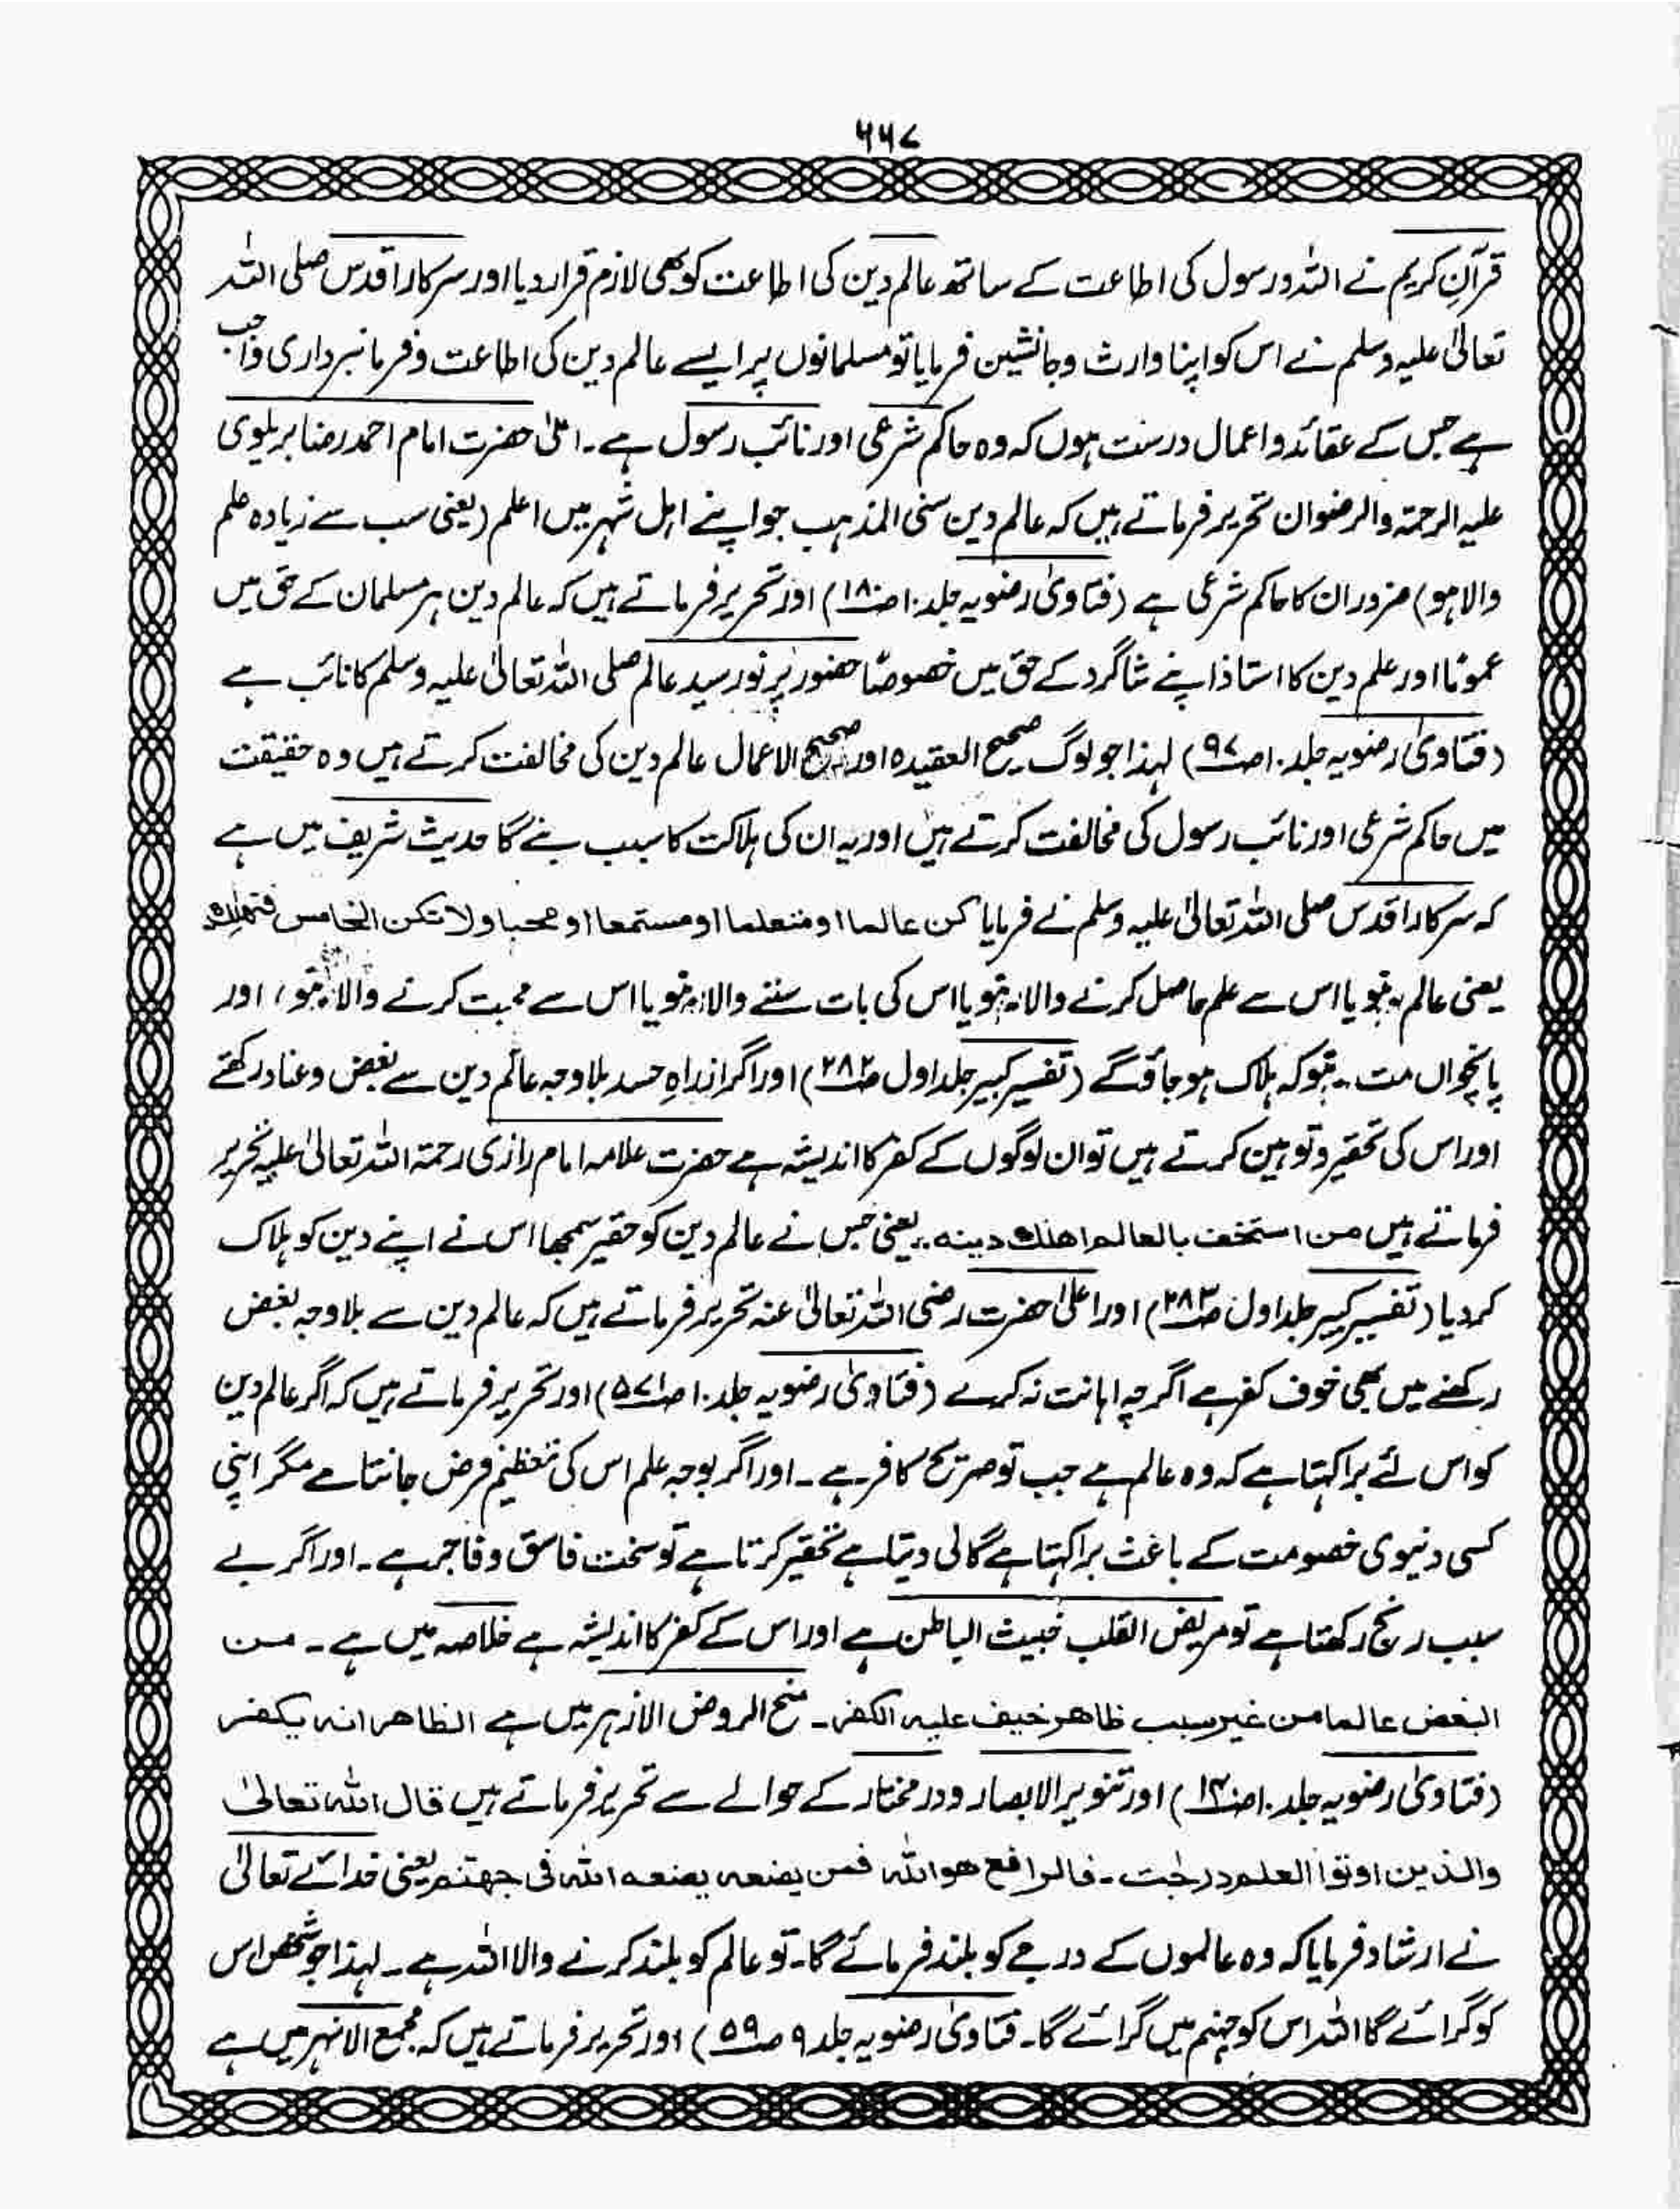 ۶۶۷
قرآنِ کریم نے اللہ و رسول کی اطاعت کے ساتھ عالم دین کی اطاعت کو بھی لازم قرار دیا اور سرکار اقدس صلی اللہ
تعالیٰ علیہ وسلم نے اس کو اپنا وارث و جانشین فرمایا تو مسلمانوں پر ایسے عالم دین کی اطاعت و فرمانبرداری واجب
ہے جس کے عقائد و اعمال درست ہوں کہ وہ حاکم شرعی اور نائب رسول ہے۔ اعلیٰ حضرت امام احمد رضا بریلوی
علیہ الرحمۃ والرضوان تحریر فرماتے ہیں کہ عالم دین سنی المذہب جو اپنے اہل شہر میں اعلم (یعنی سب سے زیادہ علم
والا ہو) ضرور ان کا حاکم شرعی ہے (فتاویٰ رضویہ جلد ۱۰ ص ۱۸۰) اور تحریر فرماتے ہیں کہ عالم دین ہر مسلمان کے حق میں
عموماً اور علم دین کا استاذ اپنے شاگرد کے حق میں خصوصاً حضور پرنور سید عالم صلی اللہ تعالیٰ علیہ وسلم کا نائب ہے
(فتاویٰ رضویہ جلد ۱۰ ص ۹۷) لہذا جو لوگ صحیح العقیدہ اور صحیح الاعمال عالم دین کی مخالفت کرتے ہیں وہ حقیقت
میں حاکم شرعی اور نائب رسول کی مخالفت کرتے ہیں اور یہ ان کی ہلاکت کا سبب بنے گا حدیث شریف میں ہے
کہ سرکار اقدس صلی اللہ تعالیٰ علیہ وسلم نے فرمایا کن عالما او متعلما او مستمعا او محبا ولا تکن الخامس فتھلک
یعنی عالم بنو یا اس سے علم حاصل کرنے والا بنو یا اس کی بات سننے والا بنو یا اس سے محبت کرنے والا بنو، اور
پانچواں مت بنو کہ ہلاک ہو جاؤگے (تفسیر کبیر جلد اول ص ۲۸۲) اور اگر از راہِ حسد بلاوجہ عالم دین سے بغض و عناد رکھتے
اور اس کی تحقیر و توہین کرتے ہیں تو ان لوگوں کے کفر کا اندیشہ ہے حضرت علامہ امام رازی رحمۃ اللہ تعالیٰ علیہ تحریر
فرماتے ہیں من استخف بالعالم اھلک دینہ۔ یعنی جس نے عالم دین کو حقیر سمجھا اس نے اپنے دین کو ہلاک
کر دیا (تفسیر کبیر جلد اول ص ۲۸۳) اور اعلیٰ حضرت رضی اللہ تعالیٰ عنہ تحریر فرماتے ہیں کہ عالم دین سے بلاوجہ بغض
رکھنے میں بھی خوف کفر ہے اگرچہ اہانت نہ کرے (فتاویٰ رضویہ جلد ۱۰ ص ۵۷۱) اور تحریر فرماتے ہیں کہ اگر عالم دین
کو اس لئے برا کہتا ہے کہ وہ عالم ہے جب تو صریح کافر ہے۔ اور اگر بوجہ علم اس کی تعظیم فرض جانتا ہے مگر اپنی
کسی دنیوی خصومت کے باعث برا کہتا ہے گالی دیتا ہے تحقیر کرتا ہے تو سخت فاسق و فاجر ہے۔ اور اگر بے
سبب رنج رکھتا ہے تو مریض القلب خبیث الباطن ہے اور اس کے کفر کا اندیشہ ہے خلاصہ میں ہے۔ من
البغض عالما من غیر سبب ظاھر خیف علیہ الکفر۔ منح الروض الازہر میں ہے الظاھر انہ یکفر
(فتاویٰ رضویہ جلد ۱۰ ص) اور تنویر الابصار و در مختار کے حوالے سے تحریر فرماتے ہیں قال اللہ تعالیٰ
والذین اوتوا العلم درجٰت۔ فالرافع ھو اللہ فمن یضعہ یضعہ اللہ فی جھنم یعنی خدائے تعالیٰ
نے ارشاد فرمایا کہ وہ عالموں کے درجے کو بلند فرمائے گا۔ تو عالم کو بلند کرنے والا اللہ ہے۔ لہذا جو شخص اس
کو گرائے گا اللہ اس کو جہنم میں گرائے گا۔ فتاویٰ رضویہ جلد ۹ ص ۵۹) اور تحریر فرماتے ہیں کہ مجمع الانہر میں ہے